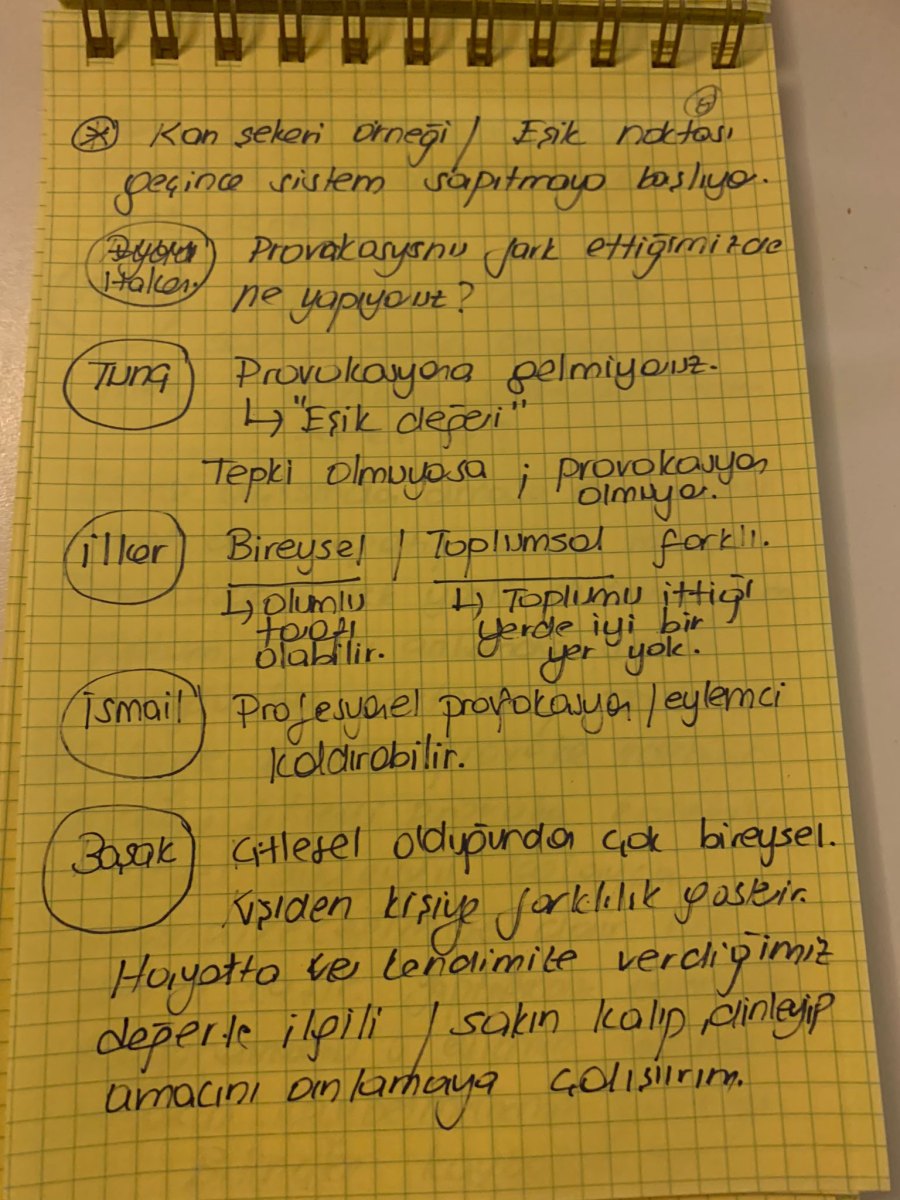 6
* Kan şekeri örneği / Eşik noktası
geçince sistem sapıtmaya başlıyor.
Provakasyonu fark ettiğimizde
ne yapıyoruz?
Tunç Provokasyona gelmiyoruz.
↳ "Eşik değeri"
Tepki olmuyosa ; provokasyon
olmuyor.
İlker Bireysel / Toplumsal farklı.
↳ olumlu
tarafı
olabilir.
↳ Toplumu ittiği
yerde iyi bir
yer yok.
İsmail Profesyonel provokasyon / eylemci
kaldırabilir.
Başak Kitlesel olduğunda çok bireysel.
Kişiden kişiye farklılık gösterir.
Hayatta ve kendimize verdiğimiz
değerle ilgili / sakin kalıp, dinleyip
amacını anlamaya çalışırım.